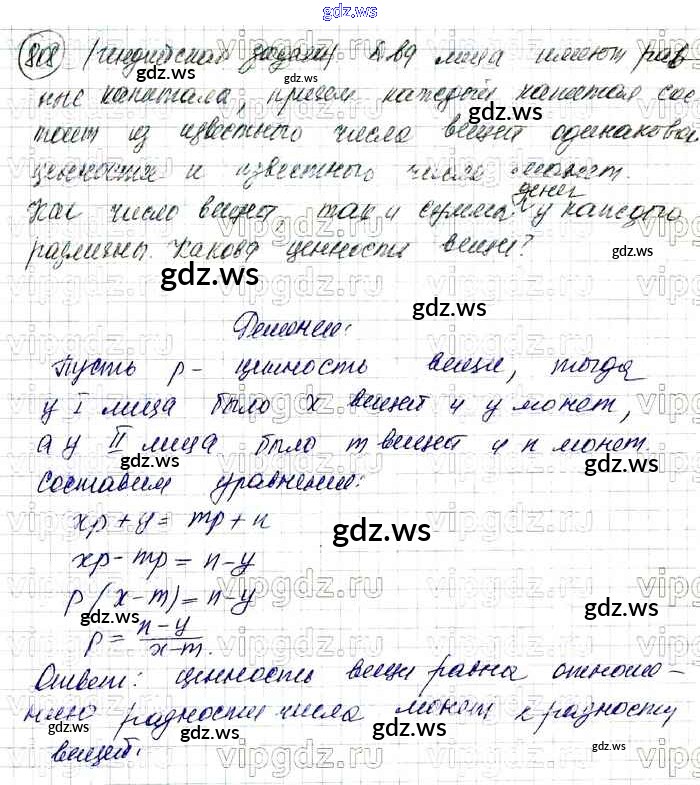 gdz.ws
808 (Индийская задача) Два лица имеют рав-
ные капитала, причем каждый капитал сос-
тоит из известного числа вещей одинаковой
ценности и известного числа монет.
Как число вещей, так и сумма денег у каждого
различны. Какова ценность вещи?
Решение:
Пусть p - ценность вещи, тогда
у I лица было x вещей и y монет,
а у II лица было m вещей и n монет.
Составим уравнение:
xp + y = mp + n
xp - mp = n - y
p(x - m) = n - y
p = n - y / x - m.
Ответ: ценность вещи равна отноше-
нию разности числа монет к разности
вещей.